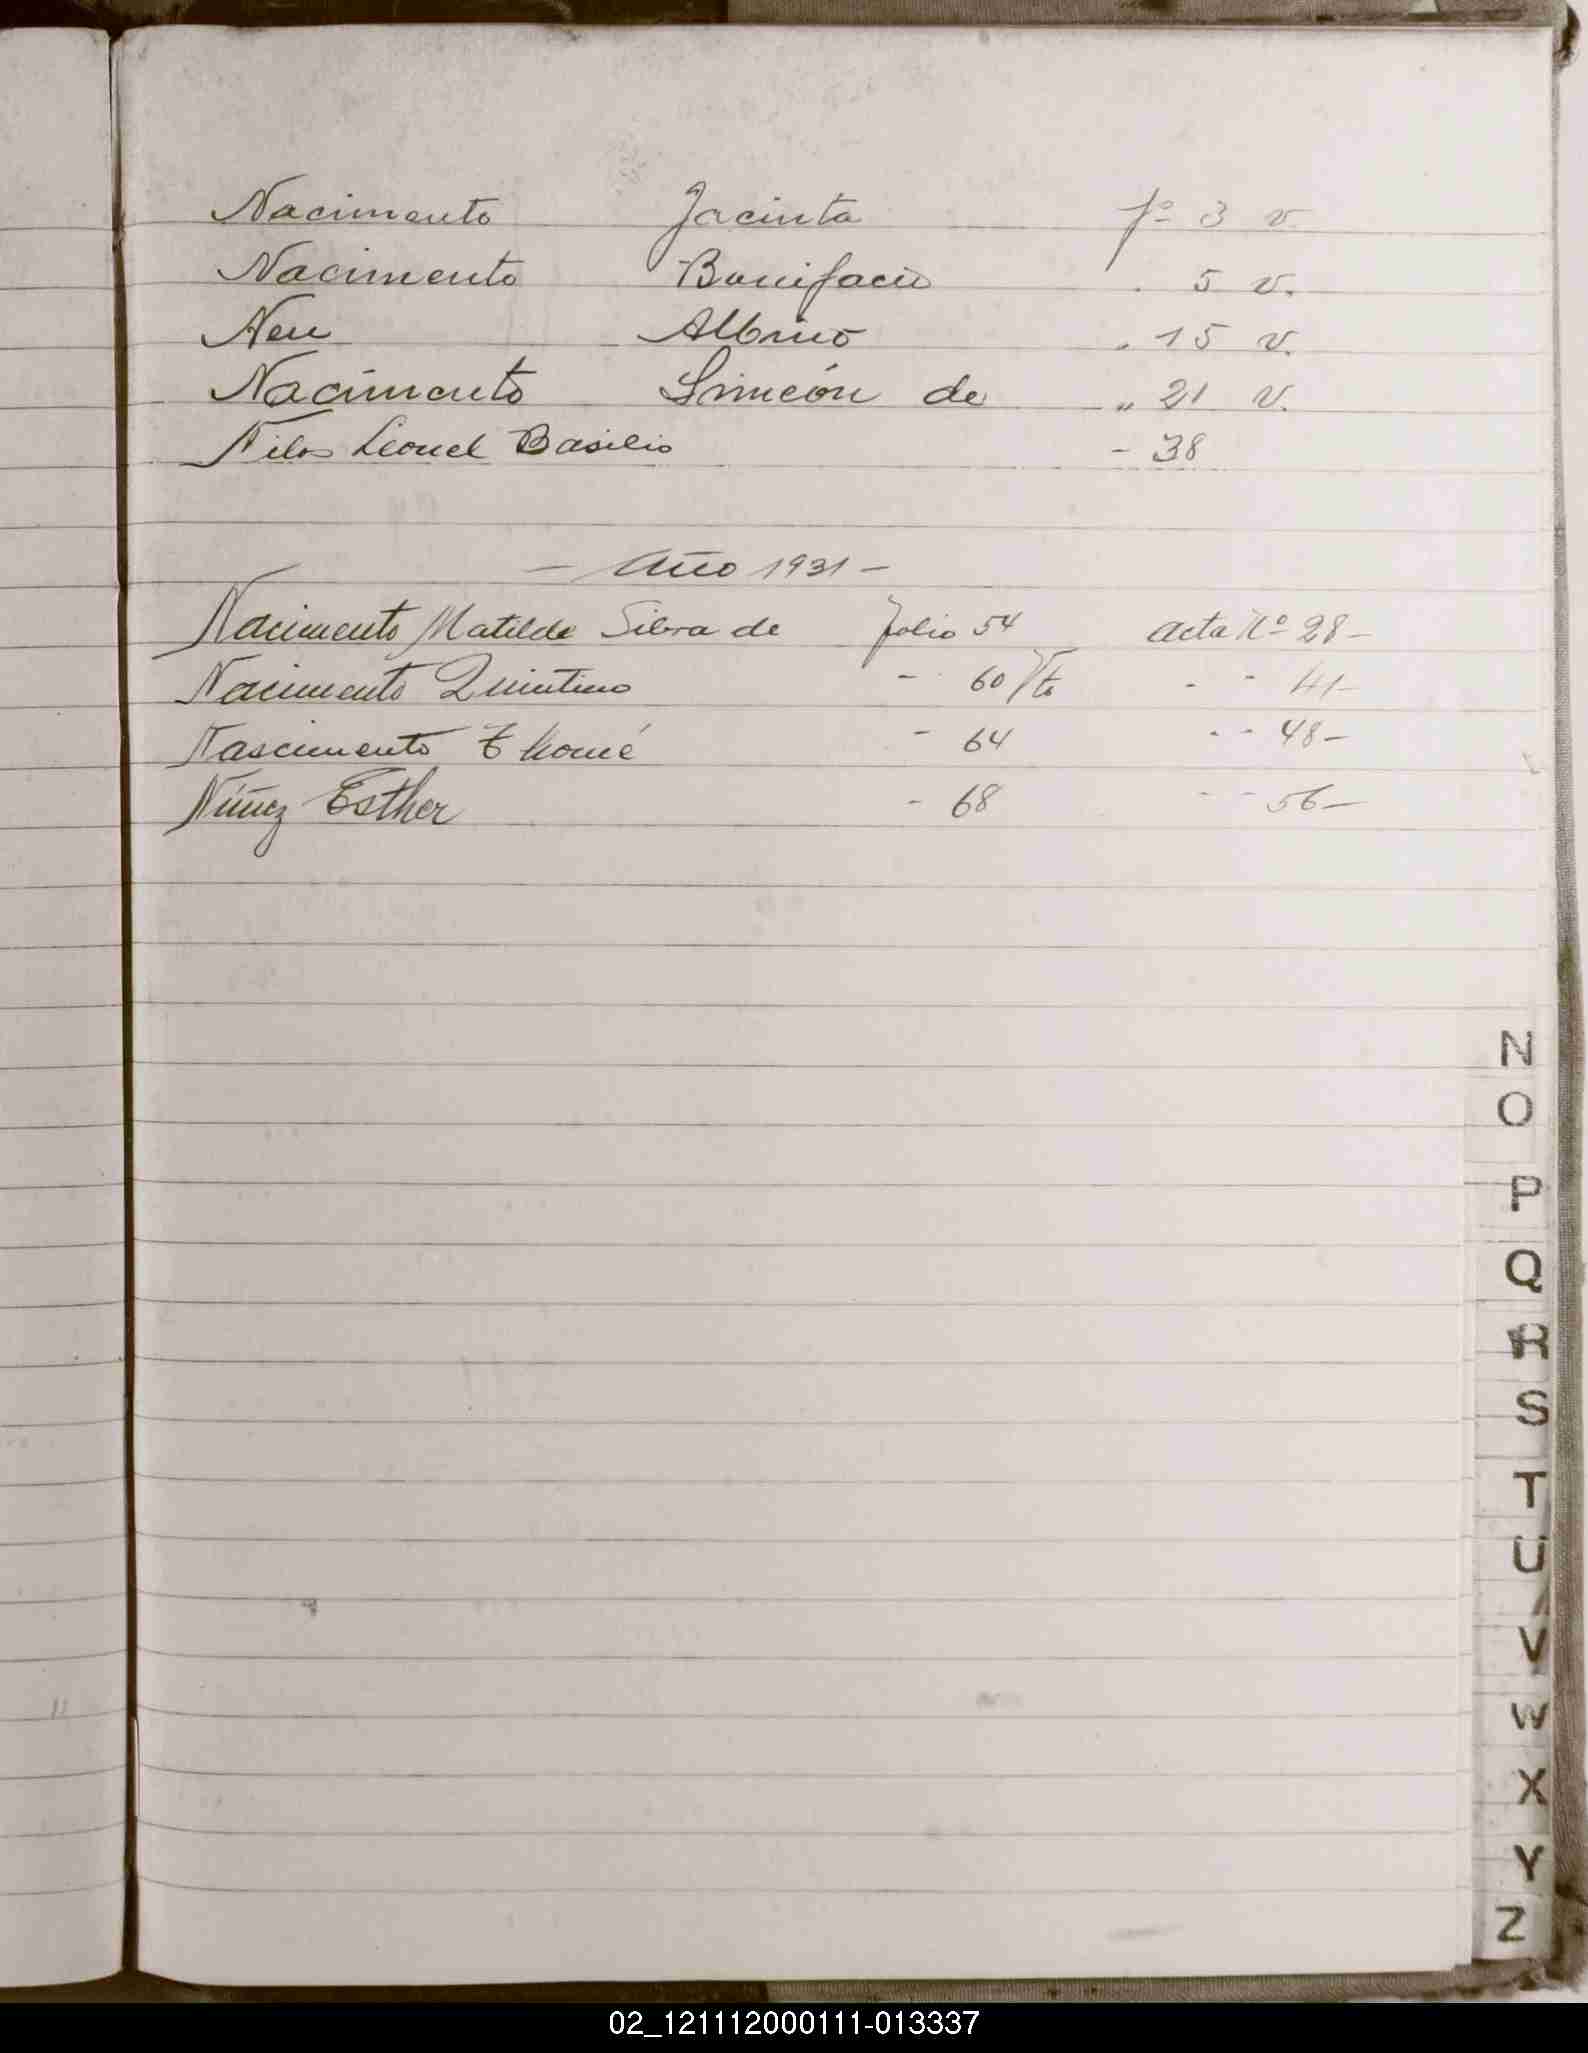 Nacimento Jacinta fº 3 v.
Nacimento Bonifacio . 5 v.
Neu Albino " 15 v.
Nacimento Simeón de " 21 v.
Nilos Leonel Basilio - 38
- Año 1931 -
Nacimento Matilde Silva de folio 54 acta Nº 28-
Nacimento Quintino - 60 Vto - - 41-
Nascimento Thomé - 64 - - 48-
Núñez Esther - 68 - - 56-
N
O
P
Q
R
S
T
U
V
W
X
Y
Z
02_121112000111-013337